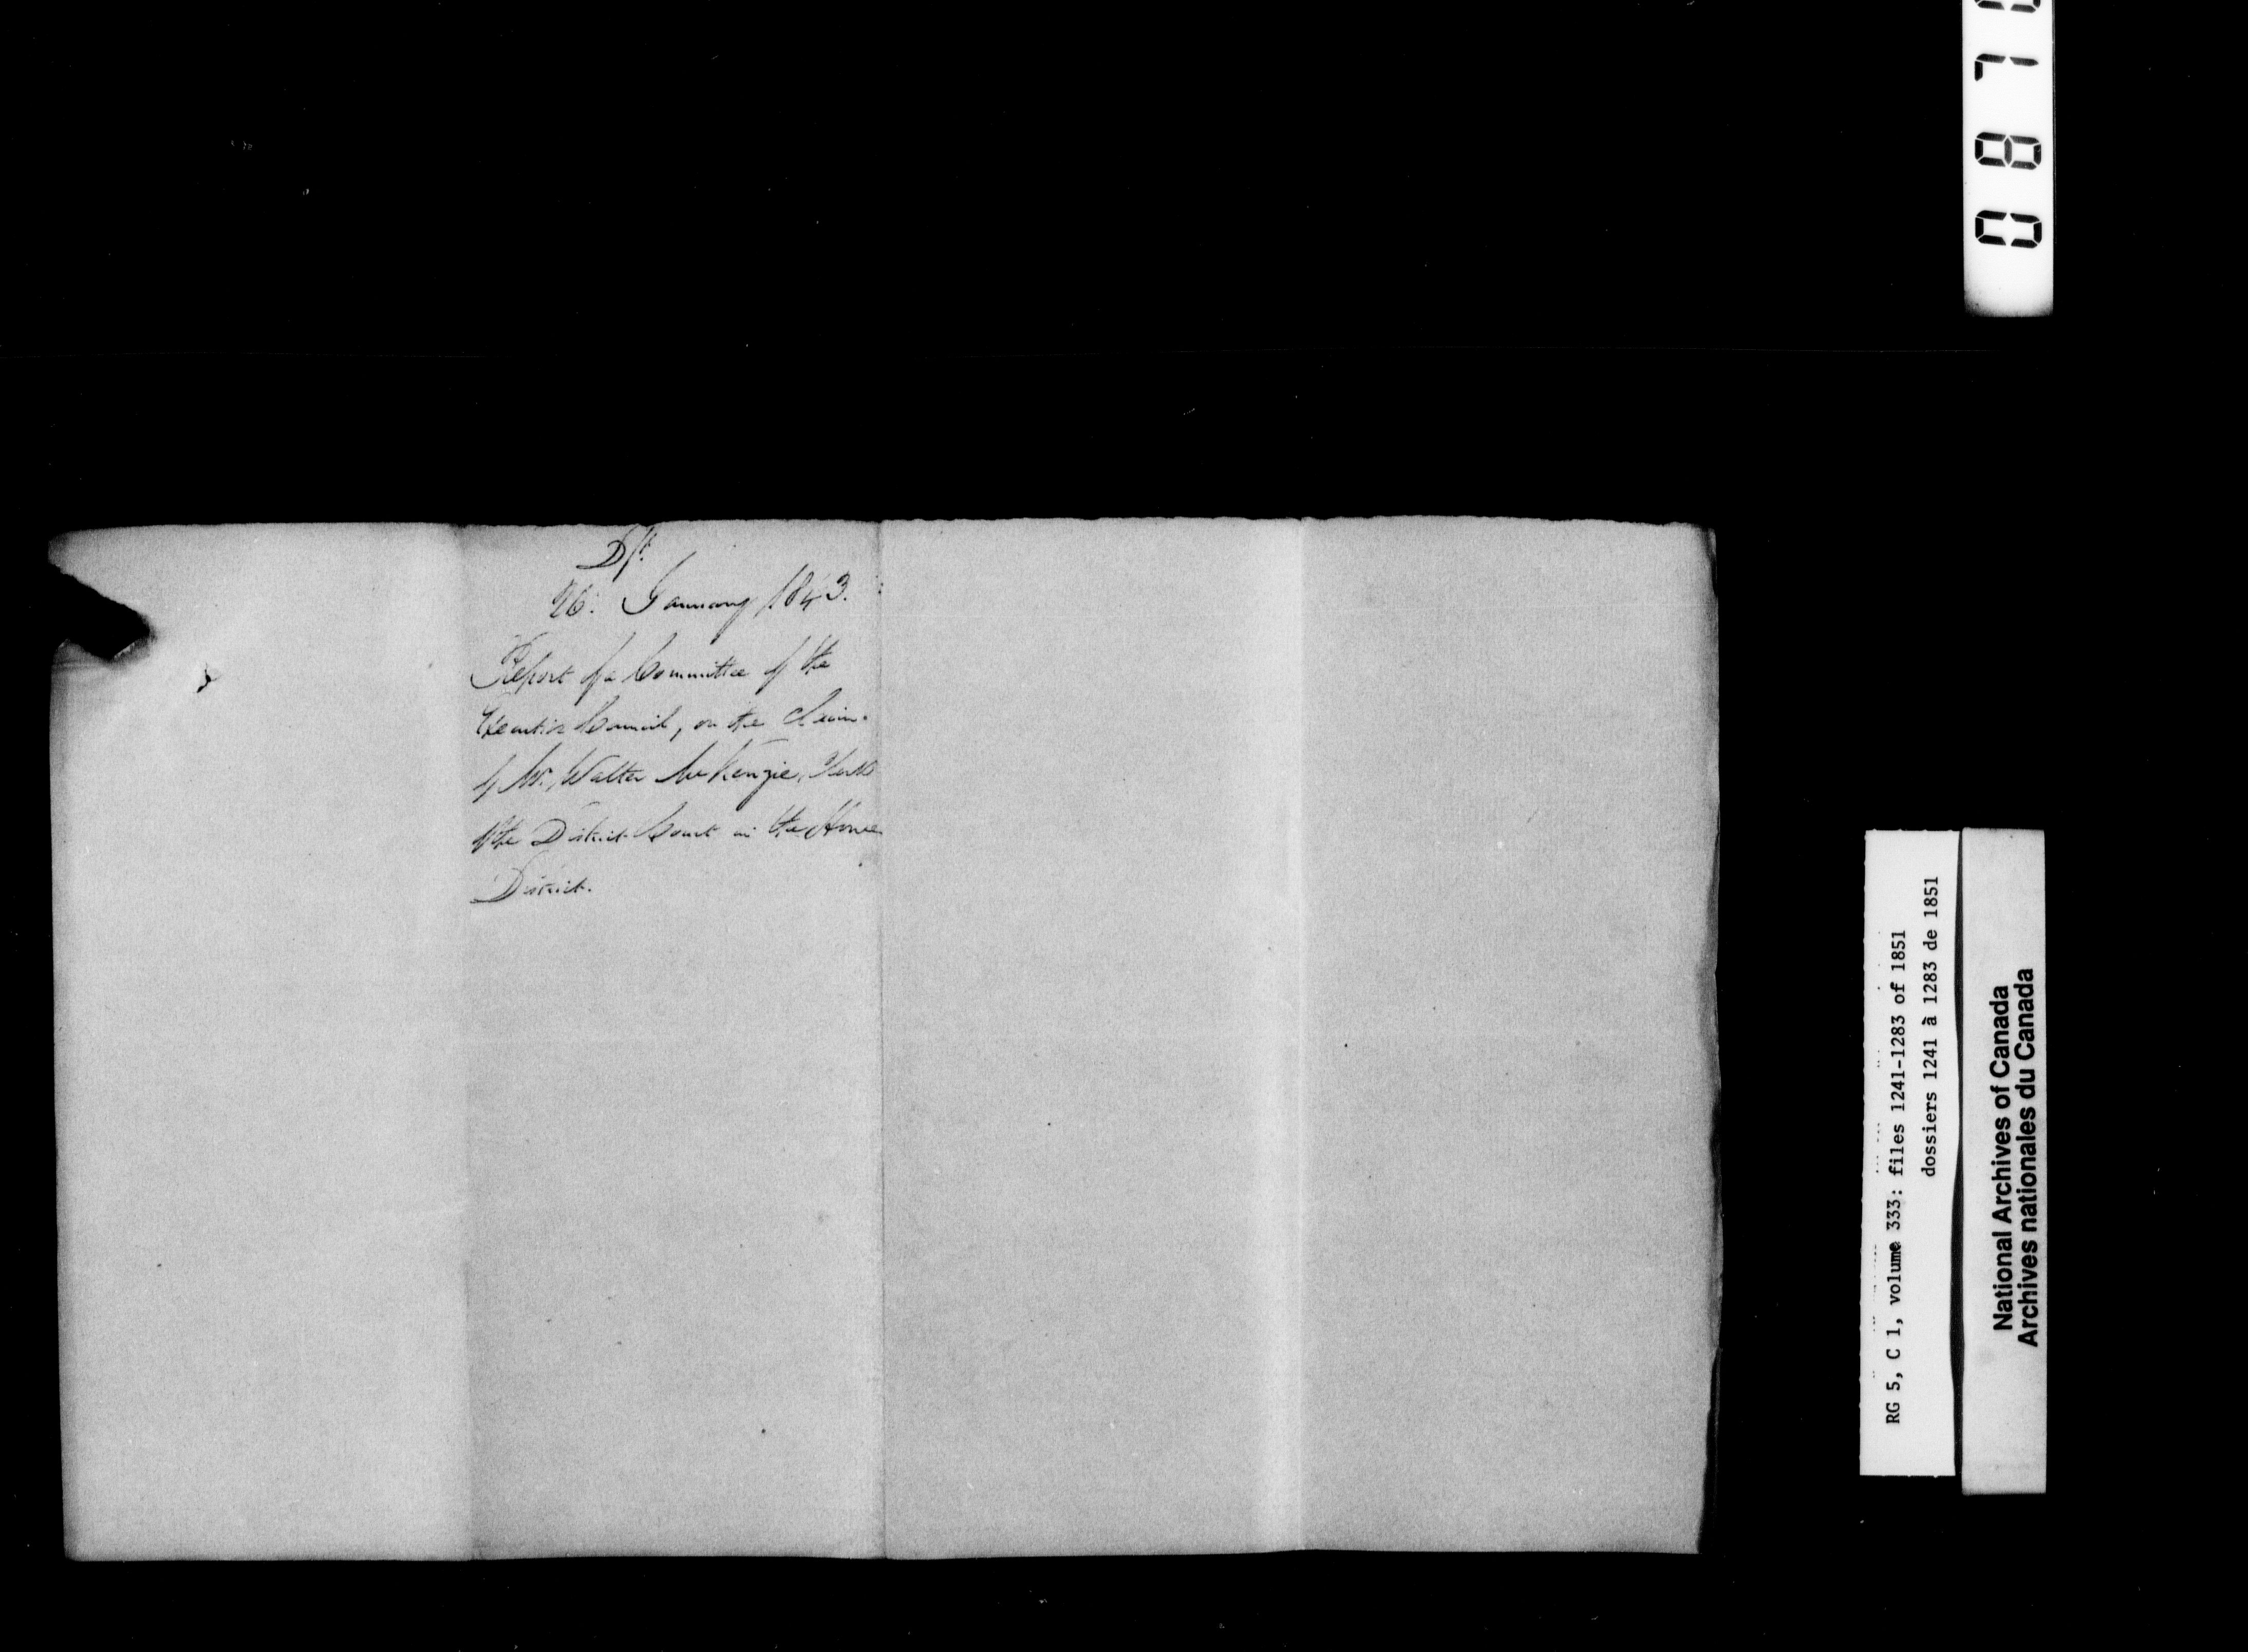 Dft.
26. January 1843.
Report of a Committee of the
Executive Council, on the Claim
of Mr. Walter McKenzie, Clerk
of the District Court in the Home
District.
0 8 7
RG 5, C 1, volume 333: files 1241-1283 of 1851
dossiers 1241 à 1283 de 1851
National Archives of Canada
Archives nationales du Canada